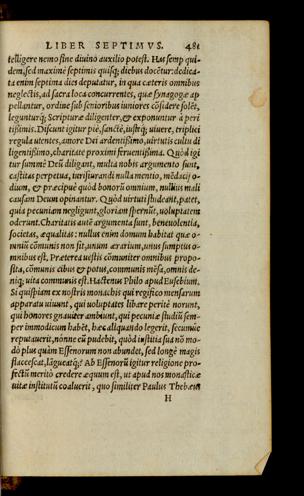 LIBER SEPTIMVS. 481
telligere nemo sine diuino auxilio potest. Has semp qui-
dem, sed maximè septimis quisq; diebus docẽtur: dedica-
ta enim septima dies deputatur, in qua cæteris omnibus
neglectis, ad sacra loca concurrentes, quæ synagogæ ap
pellantur, ordine sub senioribus iuniores cõsidere solẽt,
legunturq; Scripturæ diligenter, & exponuntur à peri
tissimis. Discunt igitur piè, sanctè, iustèq; uiuere, triplici
regula utentes, amore Dei ardentissimo, uirtutis cultu di
ligentissimo, charitate proximi feruentissima. Quòd igi
tur summè Deũ diligant, multa nobis argumento sunt,
castitas perpetua, iurisiurandi nulla mentio, mẽdacij o-
dium, & præcipuè quòd bonorũ omnium, nullius mali
causam Deum opinantur. Quòd uirtuti studeãt, patet,
quia pecuniam negligunt, gloriam spernũt, uoluptatem
oderunt. Charitatis autẽ argumenta sunt, beneuolentia,
societas, æqualitas: nullus enim domum habitat quæ o-
mniũ cõmunis non sit, unum ærarium, unus sumptus o-
mnibus est. Præterea uestis cõmuniter omnibus propo-
sita, cõmunis cibus & potus, communis mẽsa, omnis de-
niq; uita communis est. Hactenus Philo apud Eusebium.
Si quispiam ex nostris monachis qui regifico mensarum
apparatu uiuunt, qui uoluptates libare peritè norunt,
qui honores gnauiter ambiunt, qui pecuniæ studiũ sem-
per immodicum habẽt, hæc aliquando legerit, secumue
reputauerit, nonne eũ pudebit, quòd iustitia sua nõ mo-
dò plus quàm Essenorum non abundet, sed longè magis
flaccescat, lãgueatq;? Ab Essenorũ igitur religione pro-
fectũ meritò credere æquum est, ut apud nos monasticæ
uitæ institutũ coaluerit, quo similiter Paulus Thebæus
H